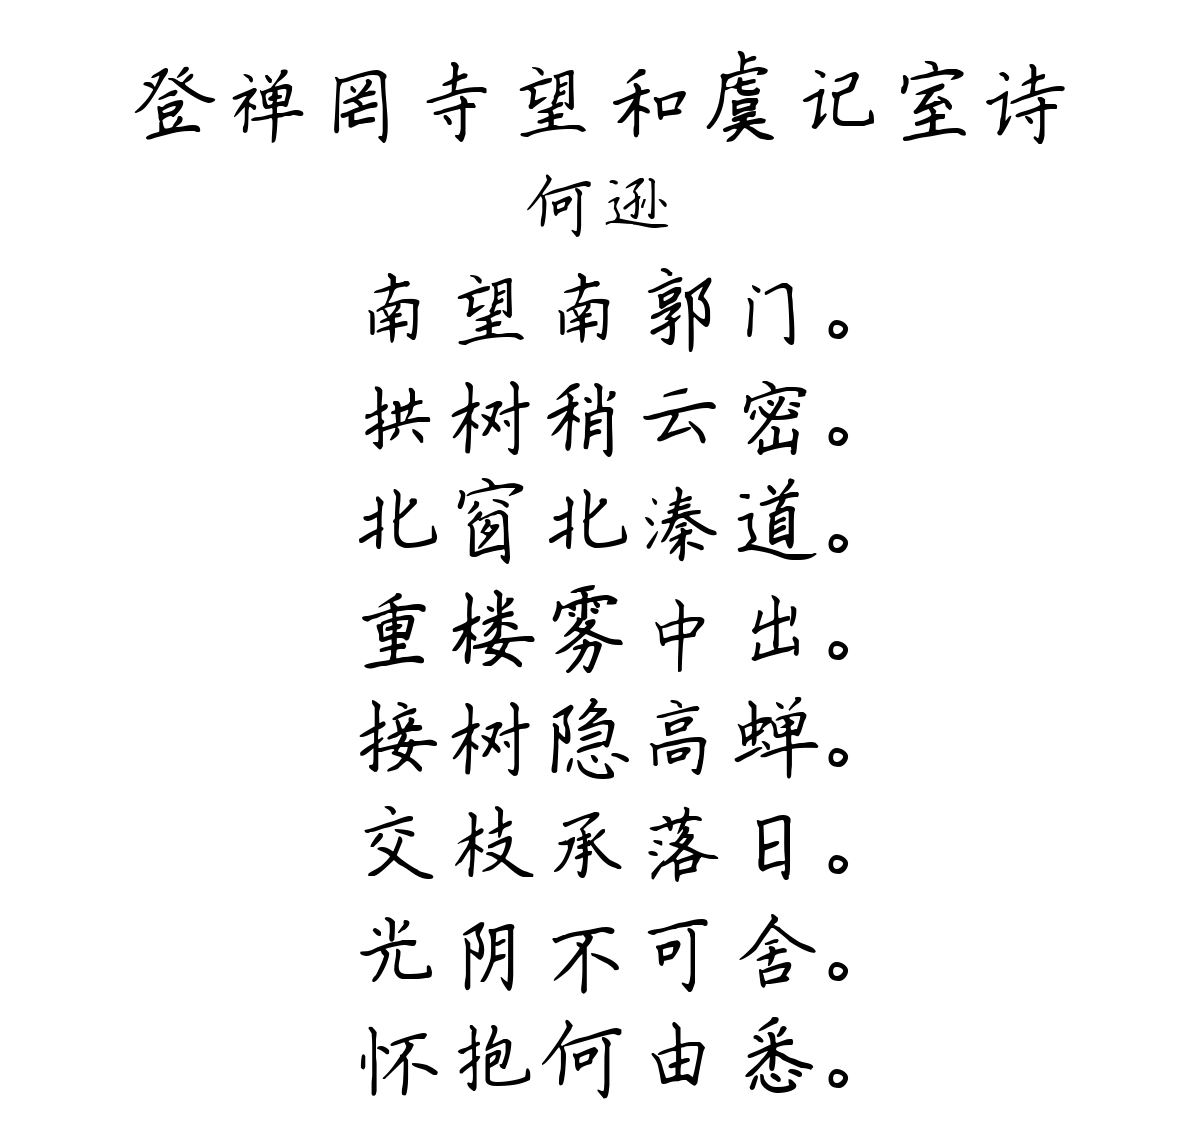 登禅罔寺望和虞记室诗
何逊
南望南郭门。
拱树稍云密。
北窗北溱道。
重楼雾中出。
接树隐高蝉。
交枝承落日。
光阴不可舍。
怀抱何由悉。